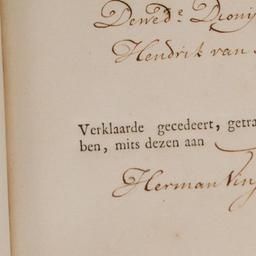 Dewede. Dionij
Hendrik van
Verklaarde gecedeert, getra
ben, mits dezen aan
Herman Vin